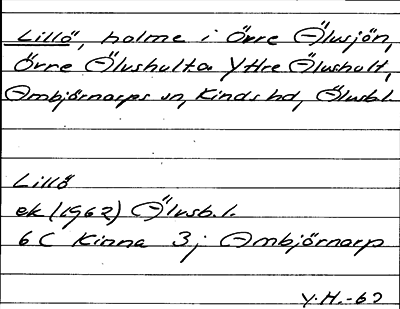 Lillö, holme i Övre Älvsjön,
Övre Älvshult o Yttre Älvshult,
Ambjörnarps sn, Kinds hd, Älvsb.l.
Lillö
ek (1962) Älvsb.l.
6C Kinna 3j Ambjörnarp
Y.H.-62